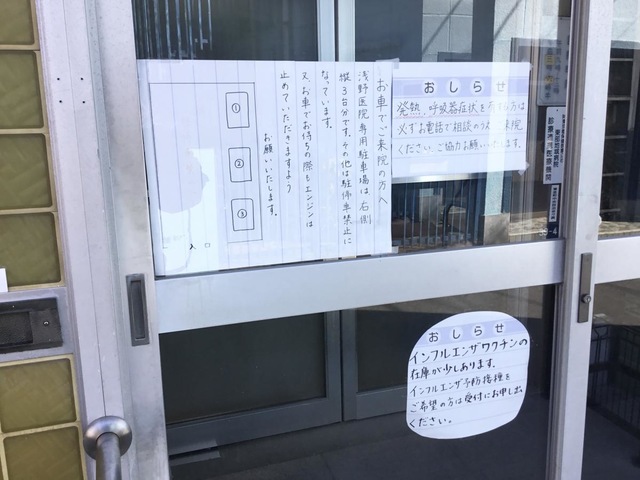 お車でご来院の方へ
浅野医院専用駐車場は右側
縦3台分です。その他は駐停車禁止に
なっています。
又、お車でお待ちの際もエンジンは
止めていただきますよう
お願いいたします。
①
②
③
入口
おしらせ
発熱、呼吸器症状を
必ずお電話で相談のうえご来院
ください。ご協力お願いいたします。
おしらせ
インフルエンザワクチンの
在庫が少しあります。
インフルエンザ予防接種を
ご希望の方は受付にお申し出
ください。